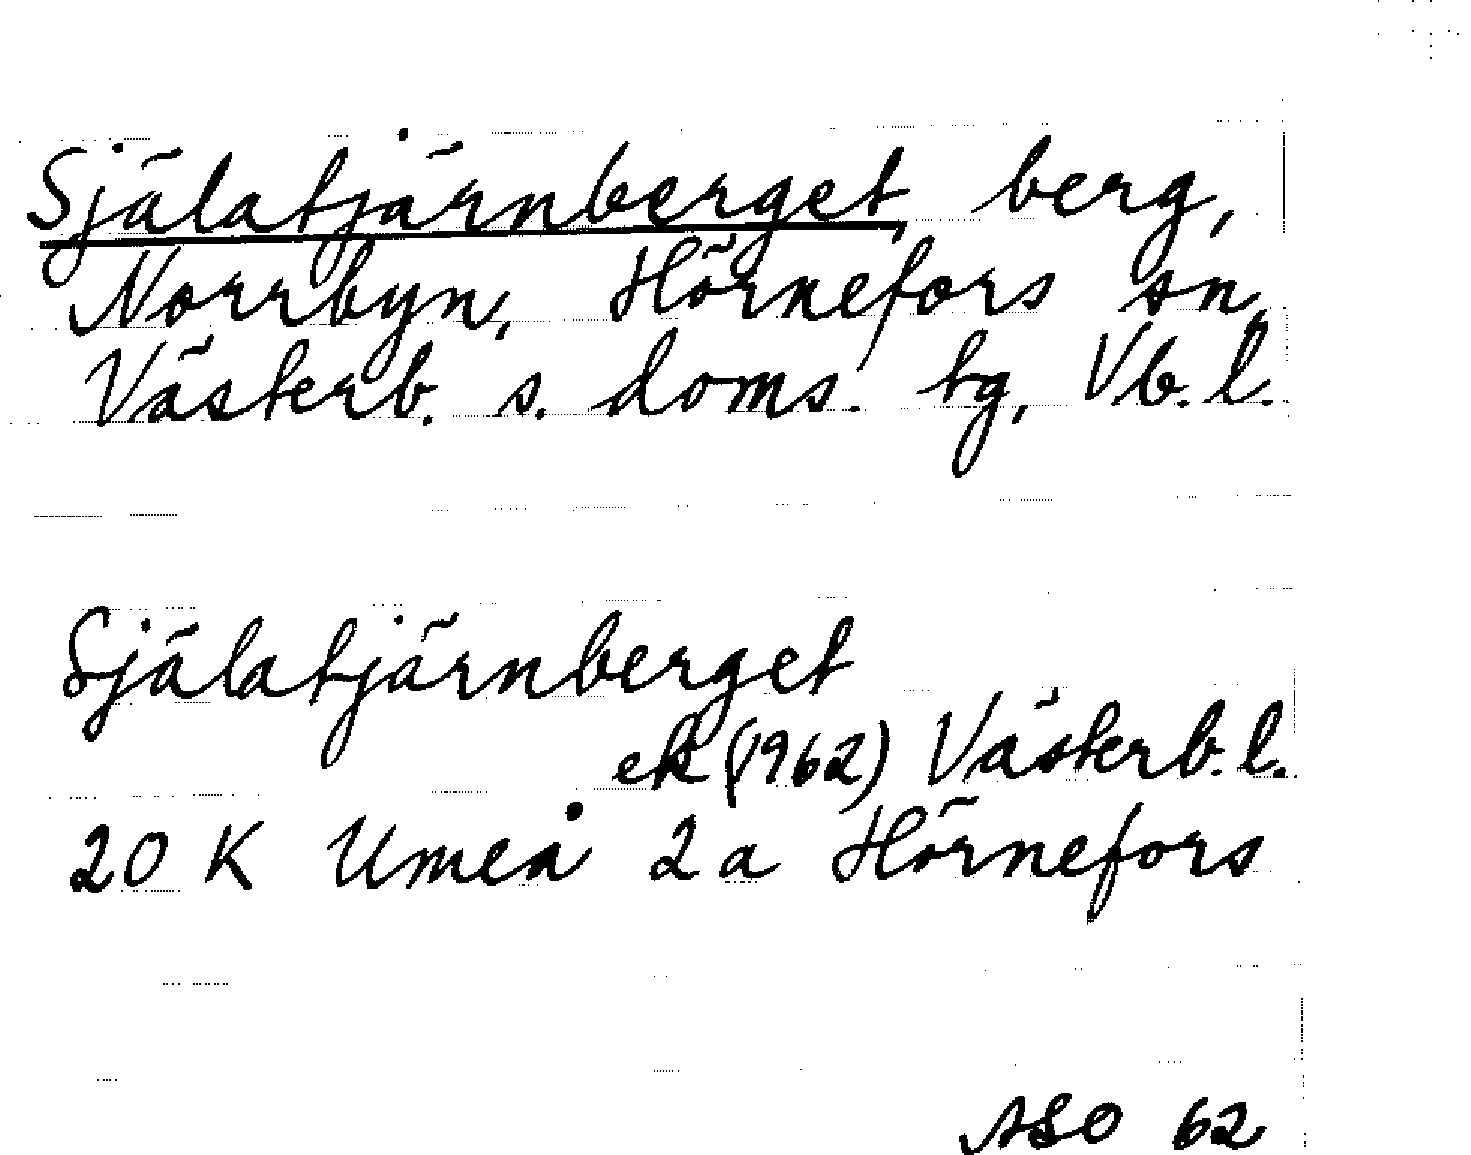 Själatjärnberget, berg,
Norrbyn, Hörnefors sn,
Västerb. s. doms. tg, Vb. l.
Själatjärnberget
ek (1962) Västerb. l.
20 K Umeå 2a Hörnefors
ASO 62